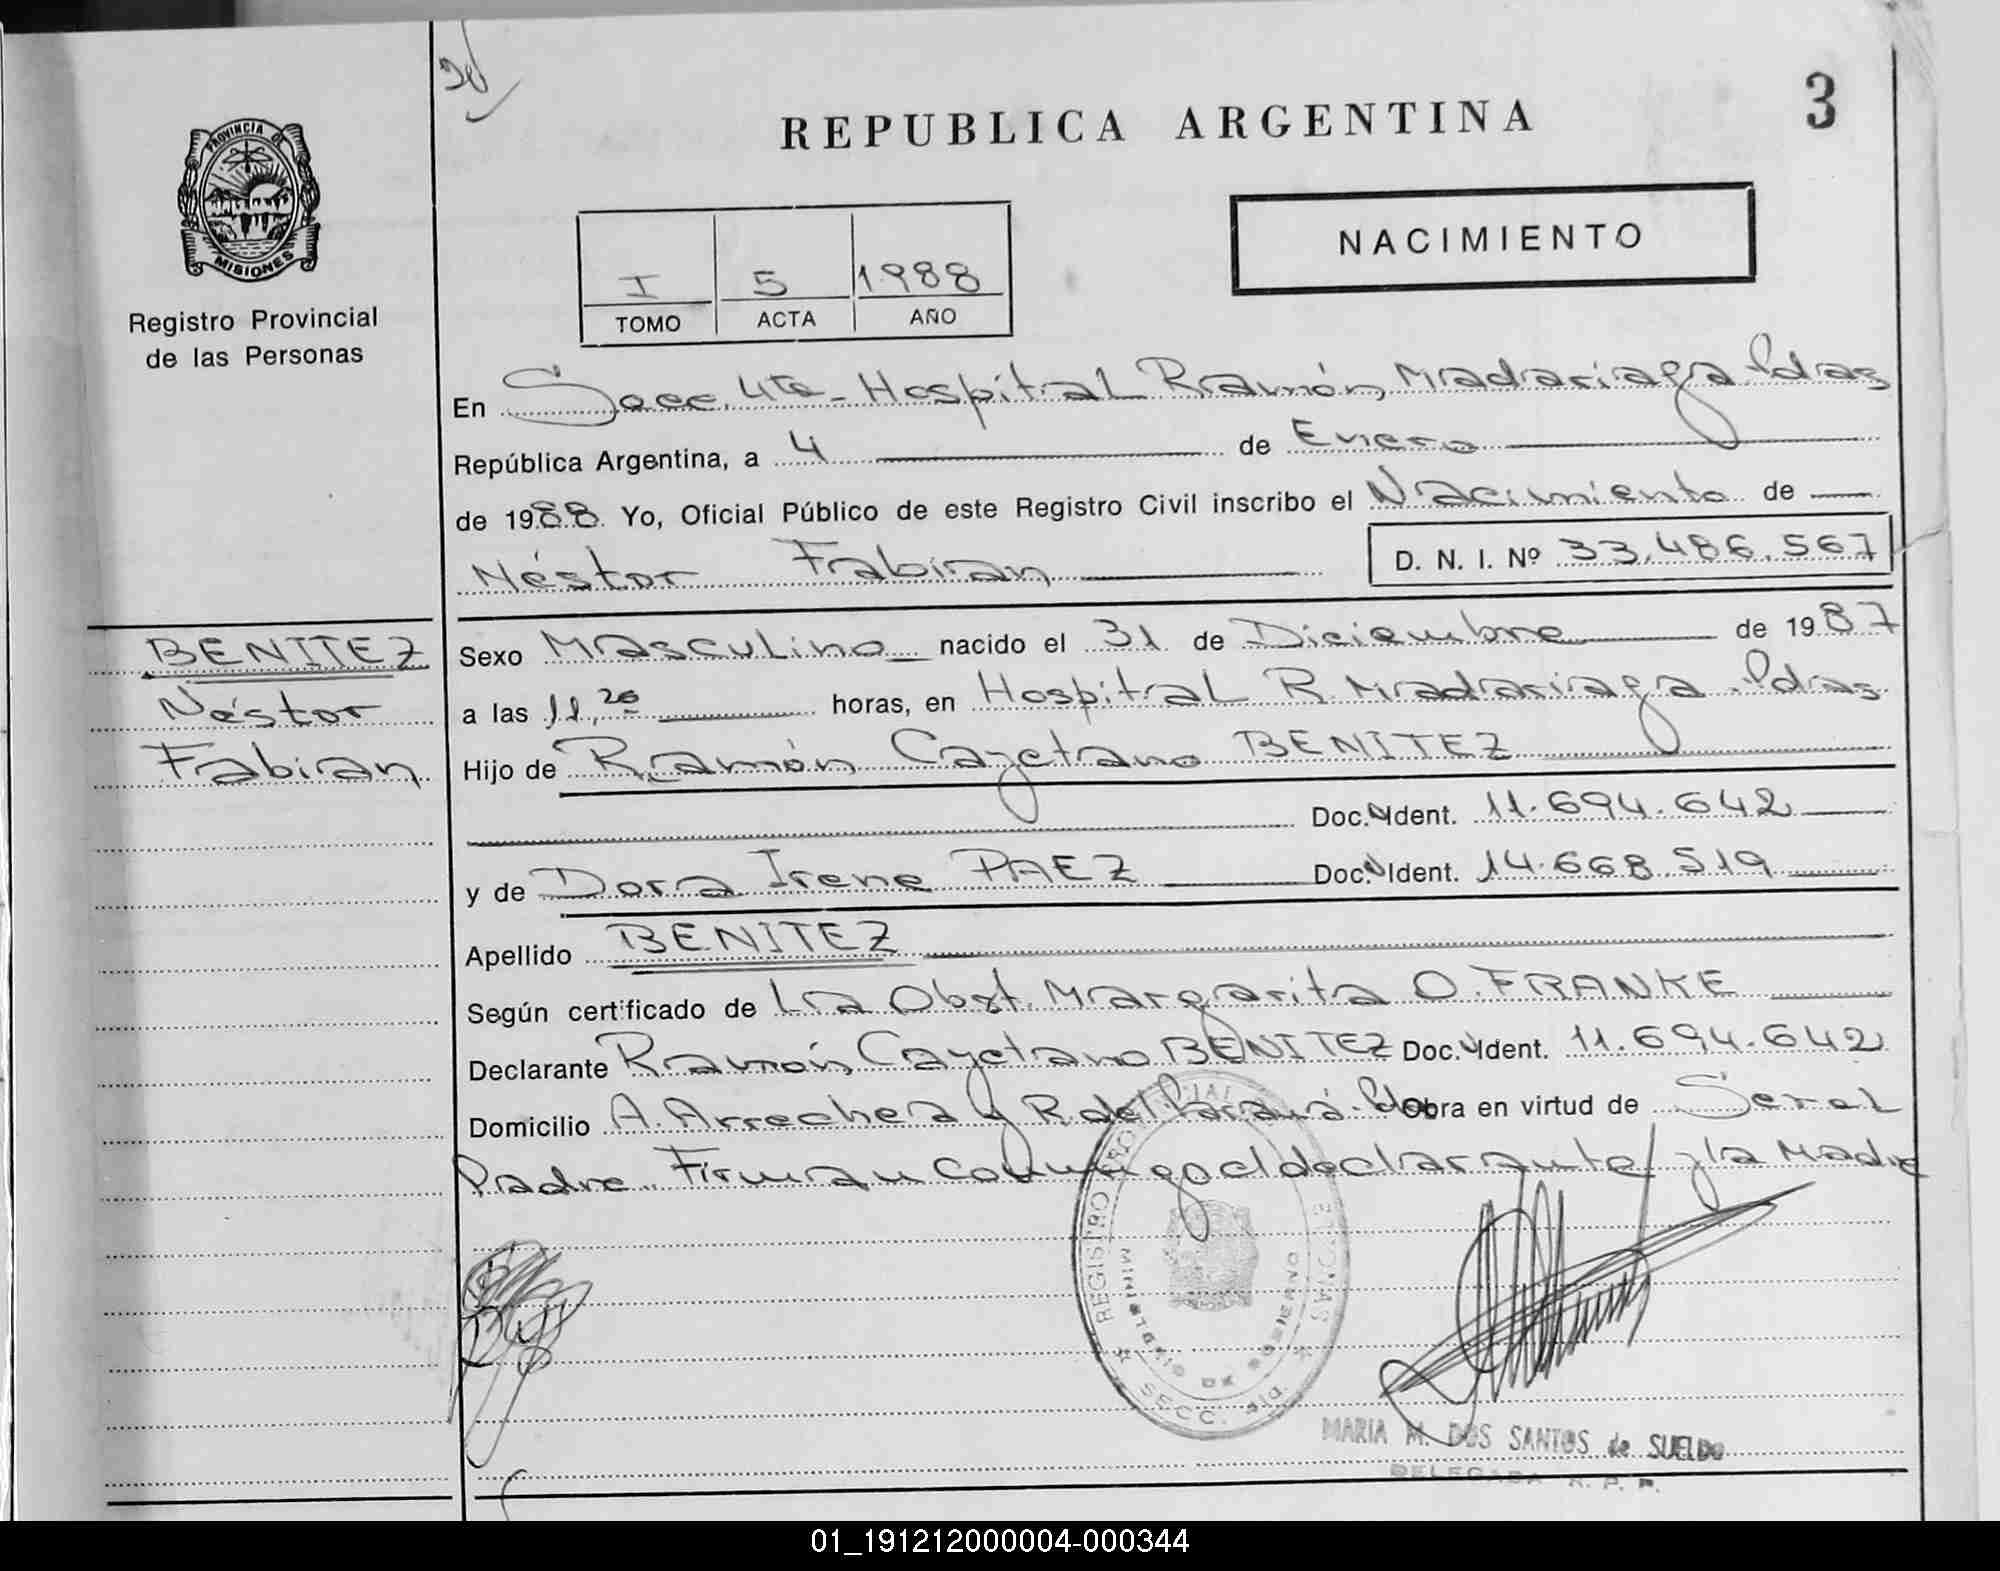 REPUBLICA ARGENTINA
3
PROVINCIA DE
MISIONES
Registro Provincial
de las Personas
I 5 1988
TOMO ACTA AÑO
NACIMIENTO
En Secc. 4ta - Hospital Ramón Madariaga Pdas
República Argentina, a 4 de Enero
de 1988 Yo, Oficial Público de este Registro Civil inscribo el Nacimiento de
Néstor Fabian D. N. I. Nº 33.486.567
BENITEZ
Néstor
Fabian
Sexo Masculino nacido el 31 de Diciembre de 1987
a las 11,20 horas, en Hospital R. Madariaga Pdas
Hijo de Ramón Cayetano BENITEZ
Doc. Ident. 11.694.642
y de Dora Irene PAEZ Doc. Ident. 14.668.519
Apellido BENITEZ
Según certificado de La Obst. Margarita O. FRANKE
Declarante Ramón Cayetano BENITEZ Doc. Ident. 11.694.642
Domicilio A. Arrechea y R. del Paraná. Obra en virtud de Ser el
Padre. Firman conmigo el declarante y la Madre
REGISTRO PROVINCIAL
MINISTERIO DE GOBIERNO
SECC. 4ta.
MARIA M. DOS SANTOS de SUELDO
DELEGADA R. P. P.
01_191212000004-000344